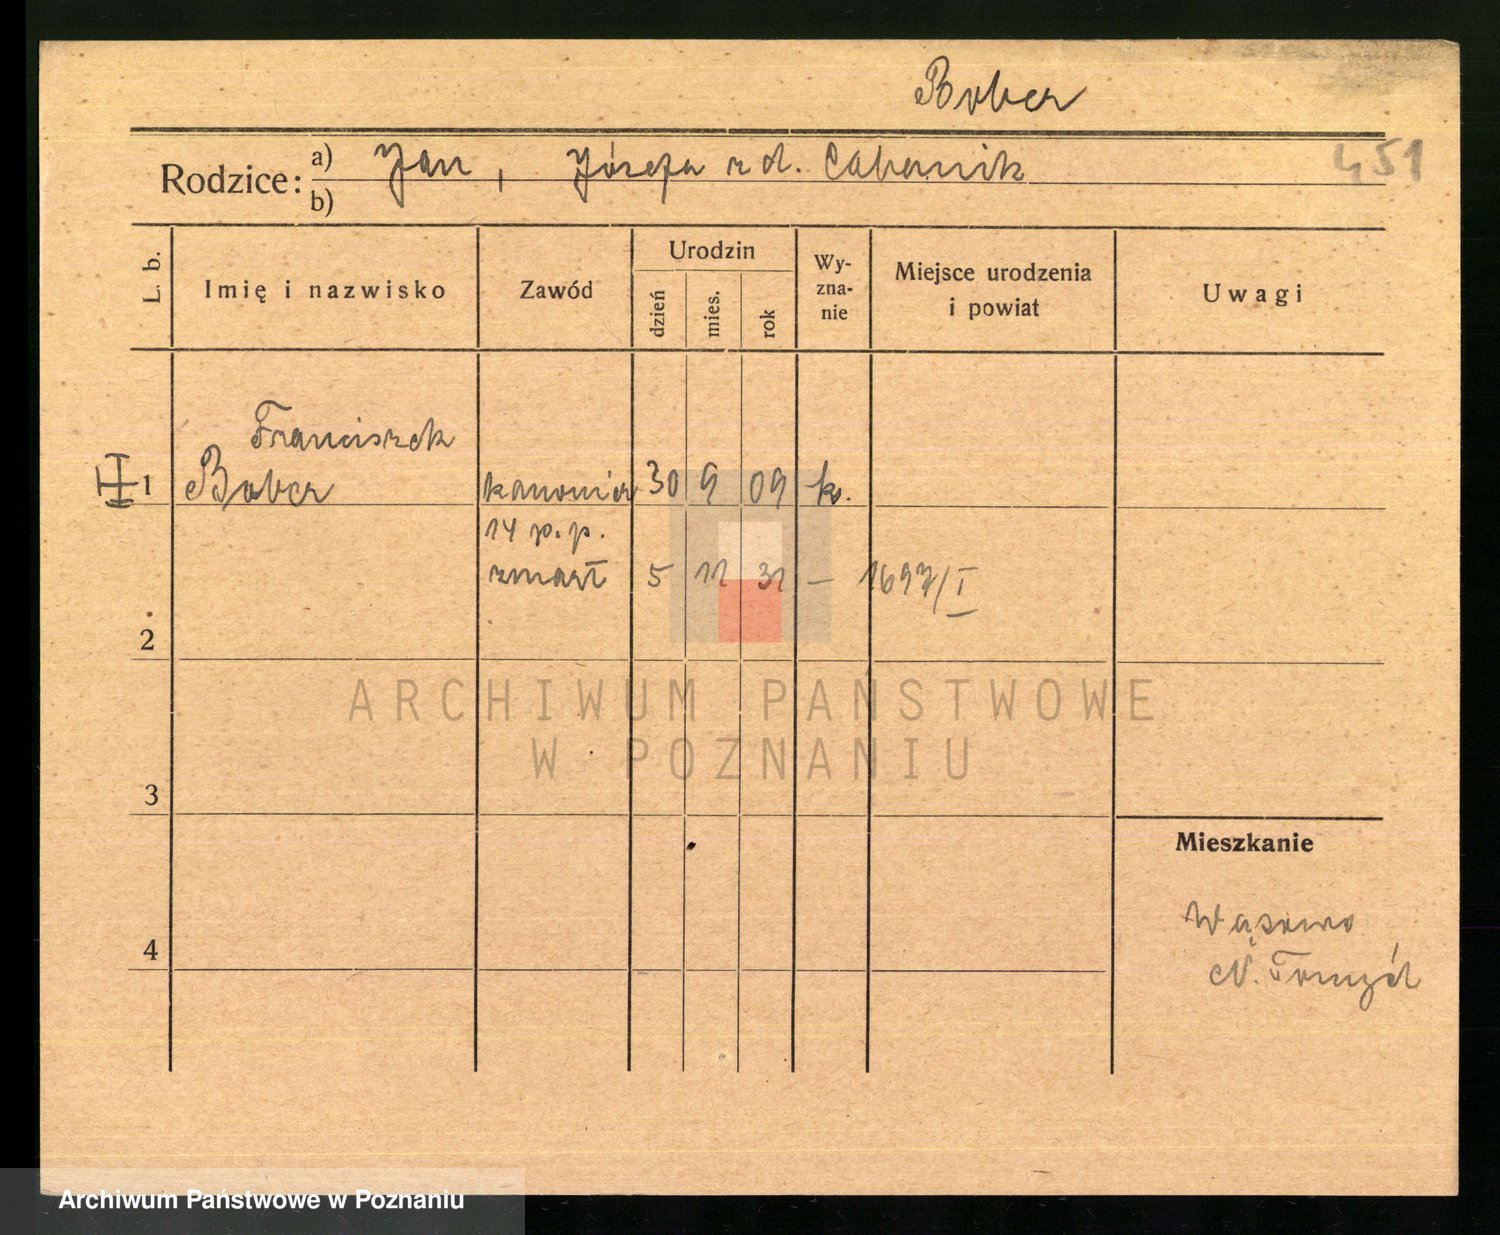 Bober
451
Rodzice: a) Jan, Józefa z d. Cabanik
b)
L. b.
Imię i nazwisko
Zawód
Urodzin
dzień
mies.
rok
Wy-
zna-
nie
Miejsce urodzenia
i powiat
Uwagi
Franciszek
1 Bober kanonier 30 9 09 k.
14 p. p.
zmarł 5 11 31 – 1697/I
2
ARCHIWUM PAŃSTWOWE
W POZNANIU
3
Mieszkanie
Wąsowo
4
N. Tomyśl
Archiwum Państwowe w Poznaniu